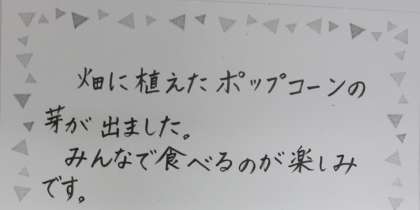 畑に植えたポップコーンの
芽が出ました。
みんなで食べるのが楽しみ
です。